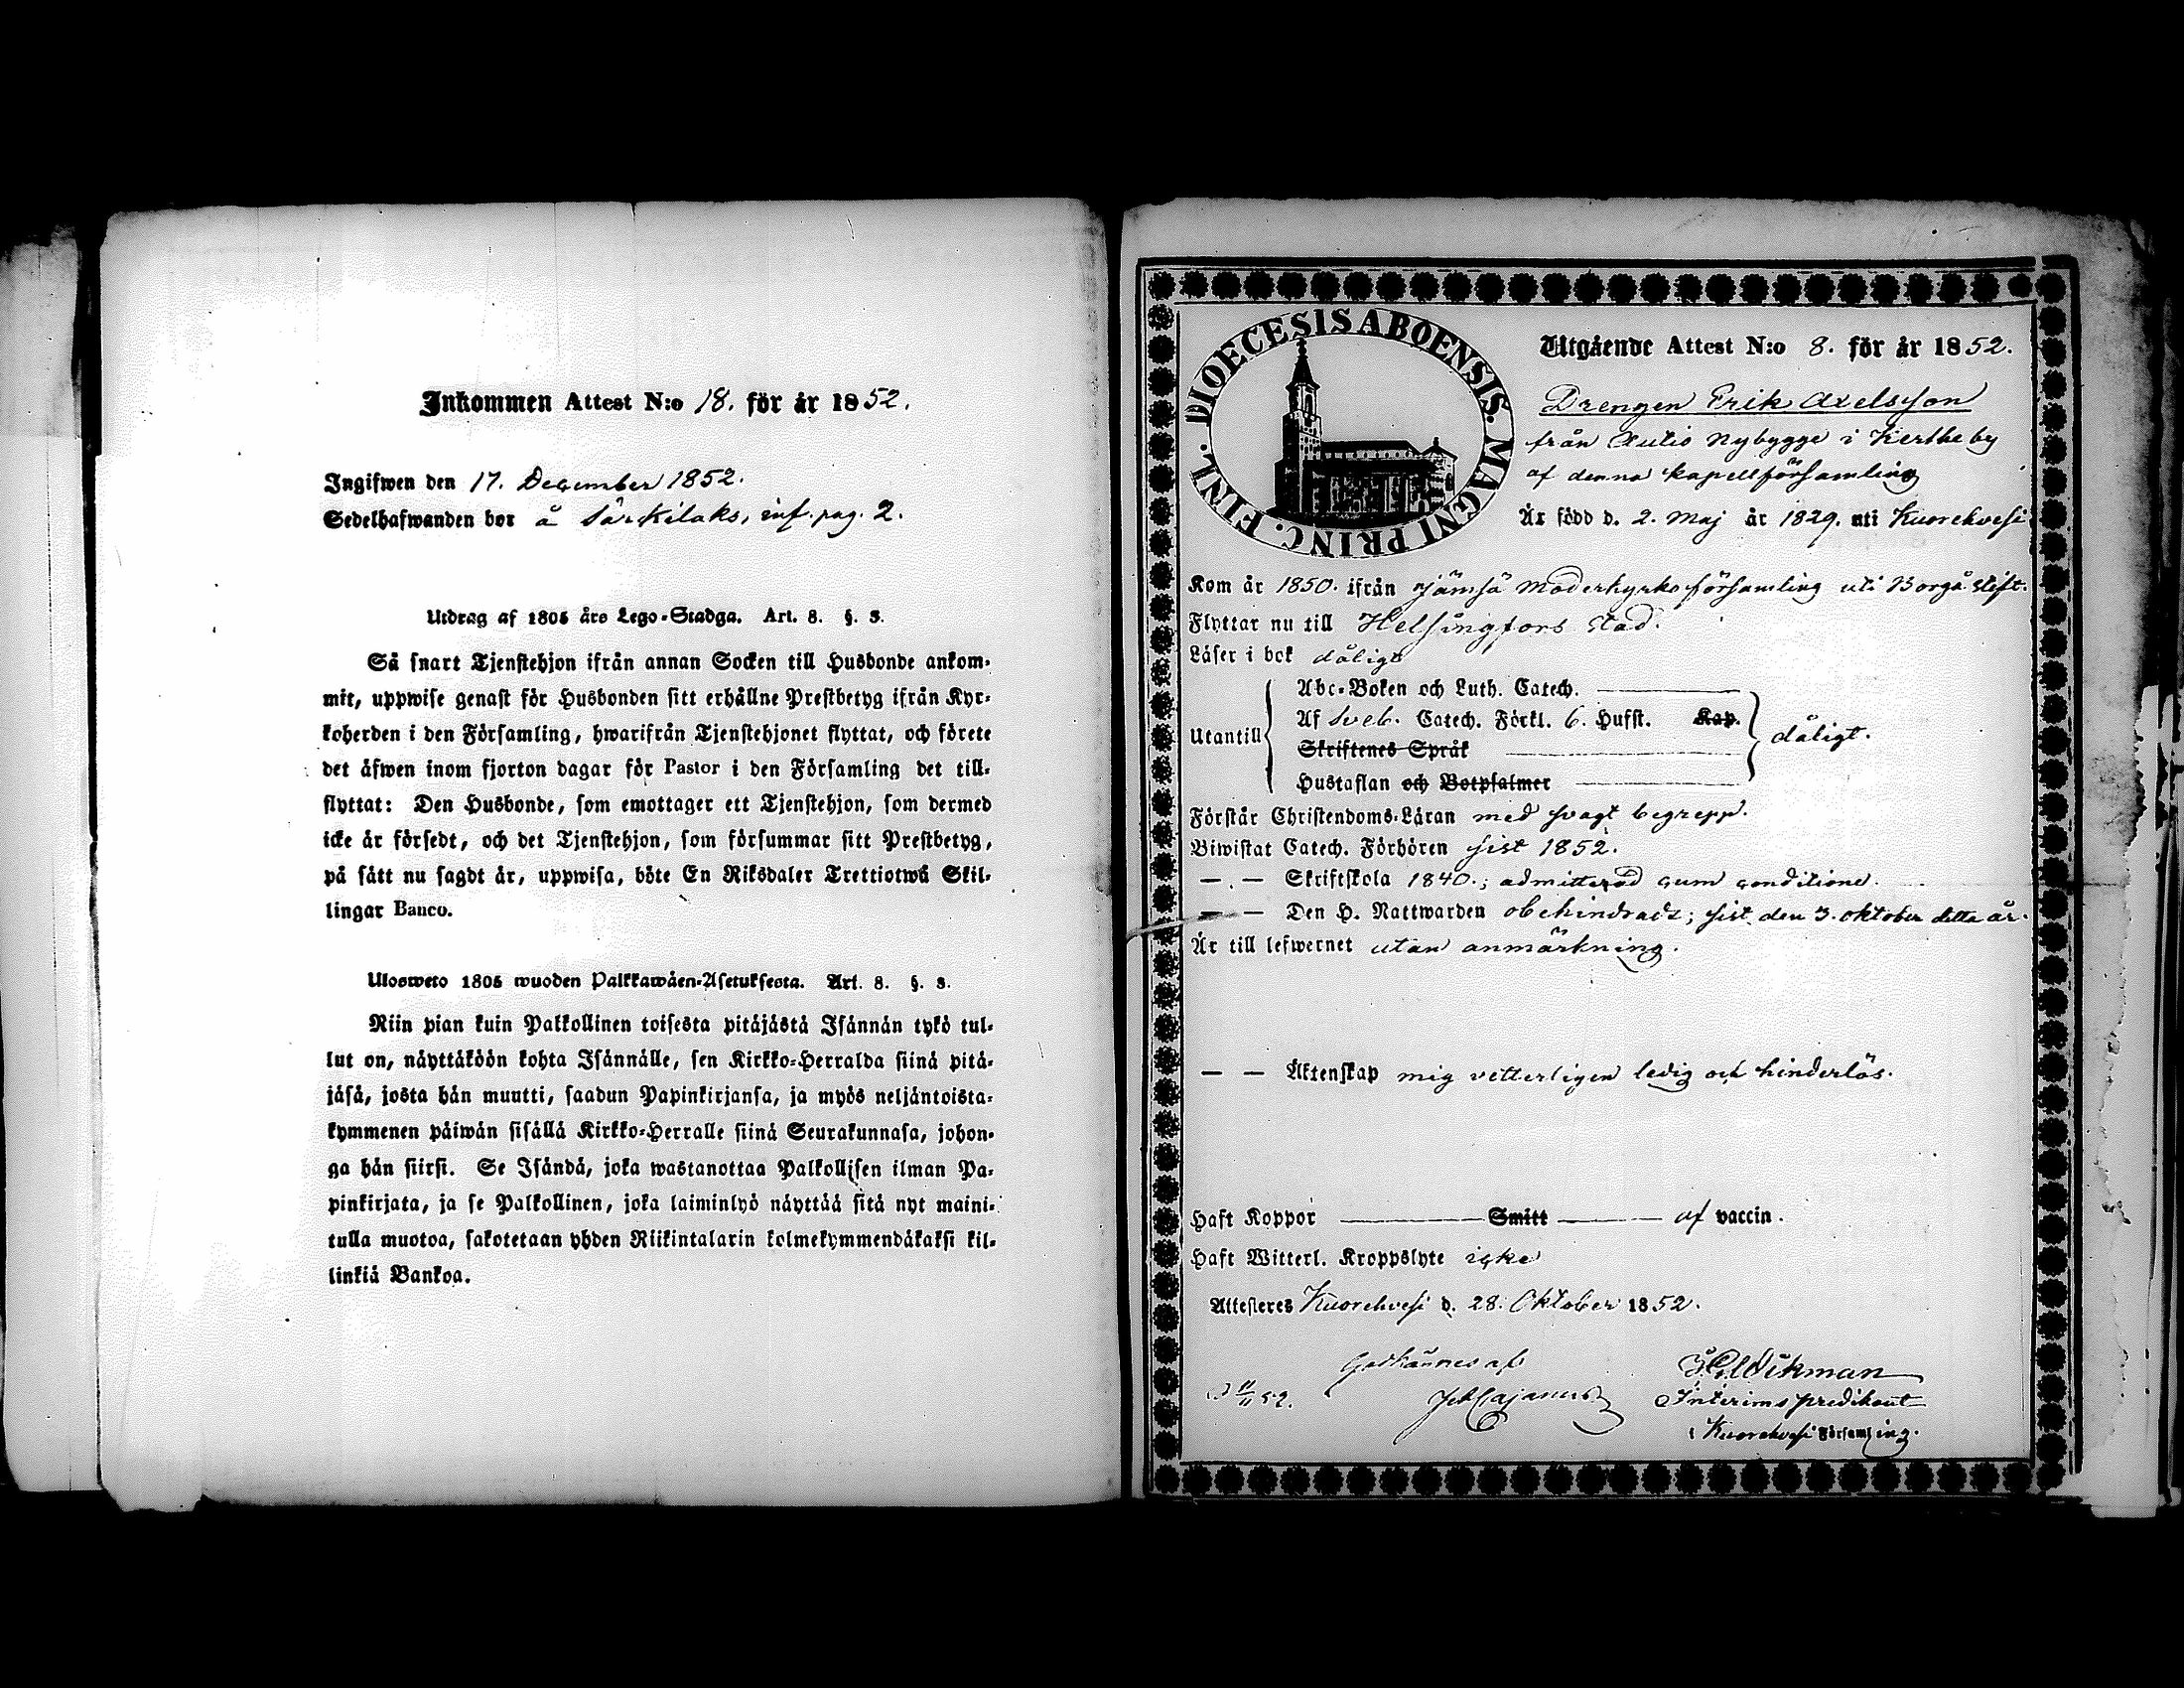 Inkommen Attest N:o 18. för år 1852.
Ingifwen den 17. December 1852.
Sedelhafwanden bor å Särkilaks, inf. pag. 2.
Utdrag af 1805 års Lego-Stadga. Art. 8. §. 3.
Så snart Tjenstehjon ifrån annan Socken till Husbonde ankom-
mit, uppwise genast för Husbonden sitt erhållne Prestbetyg ifrån Kyr-
koherden i den Församling, hwarifrån Tjenstehjonet flyttat, och förete
det äfwen inom fjorton dagar för Pastor i den Församling det till-
flyttat: Den Husbonde, som emottager ett Tjenstehjon, som dermed
icke är försedt, och det Tjenstehjon, som försummar sitt Prestbetyg,
på sätt nu sagdt är, uppwisa, böte En Riksdaler Trettiotwå Skil-
lingar Banco.
Ulosweto 1805 wuoden Palkkawäen-Asetuksesta. Art. 8. §. 3.
Niin pian kuin Palkollinen toisesta pitäjästä Isännän tykö tul-
lut on, näyttäköön kohta Isännälle, sen Kirkko-Herralda siinä pitä-
jäsä, josta hän muutti, saadun Papinkirjansa, ja myös neljäntoista-
kymmenen päiwän sisällä Kirkko-Herralle siinä Seurakunnasa, johon-
ga hän siirsi. Se Isändä, joka wastanottaa Palkollisen ilman Pa-
pinkirjata, ja se Palkollinen, joka laiminlyö näyttää sitä nyt maini-
tulla muotoa, sakotetaan yhden Riikintalarin kolmekymmendäkaksi kil-
linkiä Bankoa.
DIOECESIS ABOENSIS. MAGNI PRINC. FINL.
Utgående Attest N:o 8. för år 1852.
Drengen Erik Axelsson
från Autio Nybygge i Kerthe by
af denna kapellförsamling
Är född d. 2. Maj år 1829. uti Kuorehvesi
Kom år 1850. ifrån Jämsä Moderkyrko församling uti Borgå Stift.
Flyttar nu till Helsingfors Stad.
Läser i bok dåligt
Utantill
Abc-Boken och Luth. Catech.
Af Sveb. Catech. Förkl. 6. Hufst. Kap.
Skriftenes Språk
Hustaflan och Botpsalmer
dåligt.
Förstår Christendoms-Läran med svagt begrepp.
Biwistat Catech. Förhören sist 1852.
— — Skriftskola 1840.; admitterad cum conditione.
— — Den H. Nattwarden obehindradt; sist den 3. oktober detta år.
Är till lefwernet utan anmärkning.
— — Äktenskap mig vetterligen ledig och hinderlös.
Haft Koppor Smitt af vaccin.
Haft Witterl. Kroppslyte icke
Attesteres Kuorehvesi d. 28. Oktober 1852.
Godkännes af
Cajanus
Wikman
Interimspredikant
i Kuorehvesi Församling.